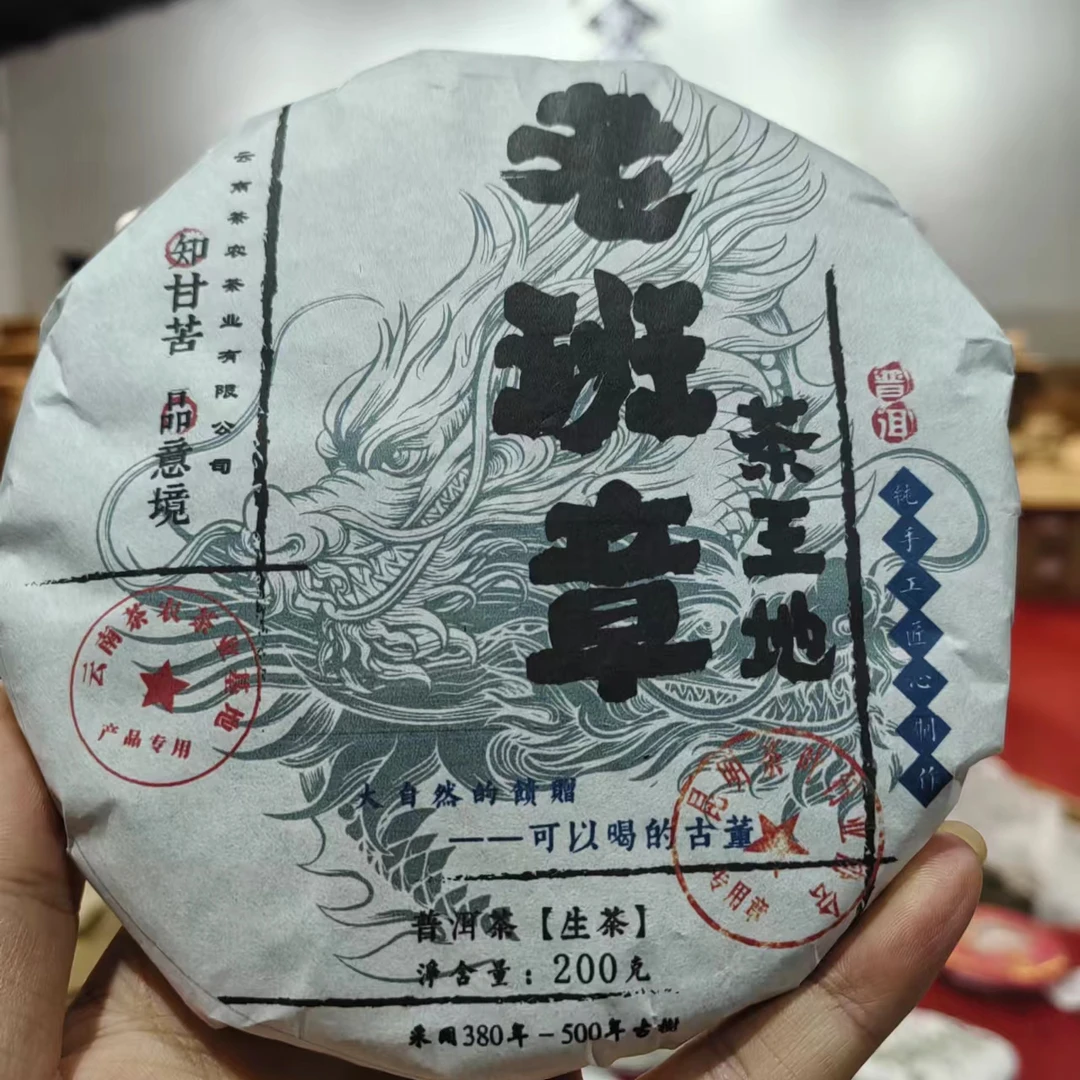 老班章
茶王地
云南茶农茶业有限公司
知甘苦 品意境
普洱
纯手工匠心制作
云南茶农茶
基地
产品专用
大自然的馈赠
——可以喝的古董
专用章
普洱茶【生茶】
净含量:200克
采用380年-500年古树